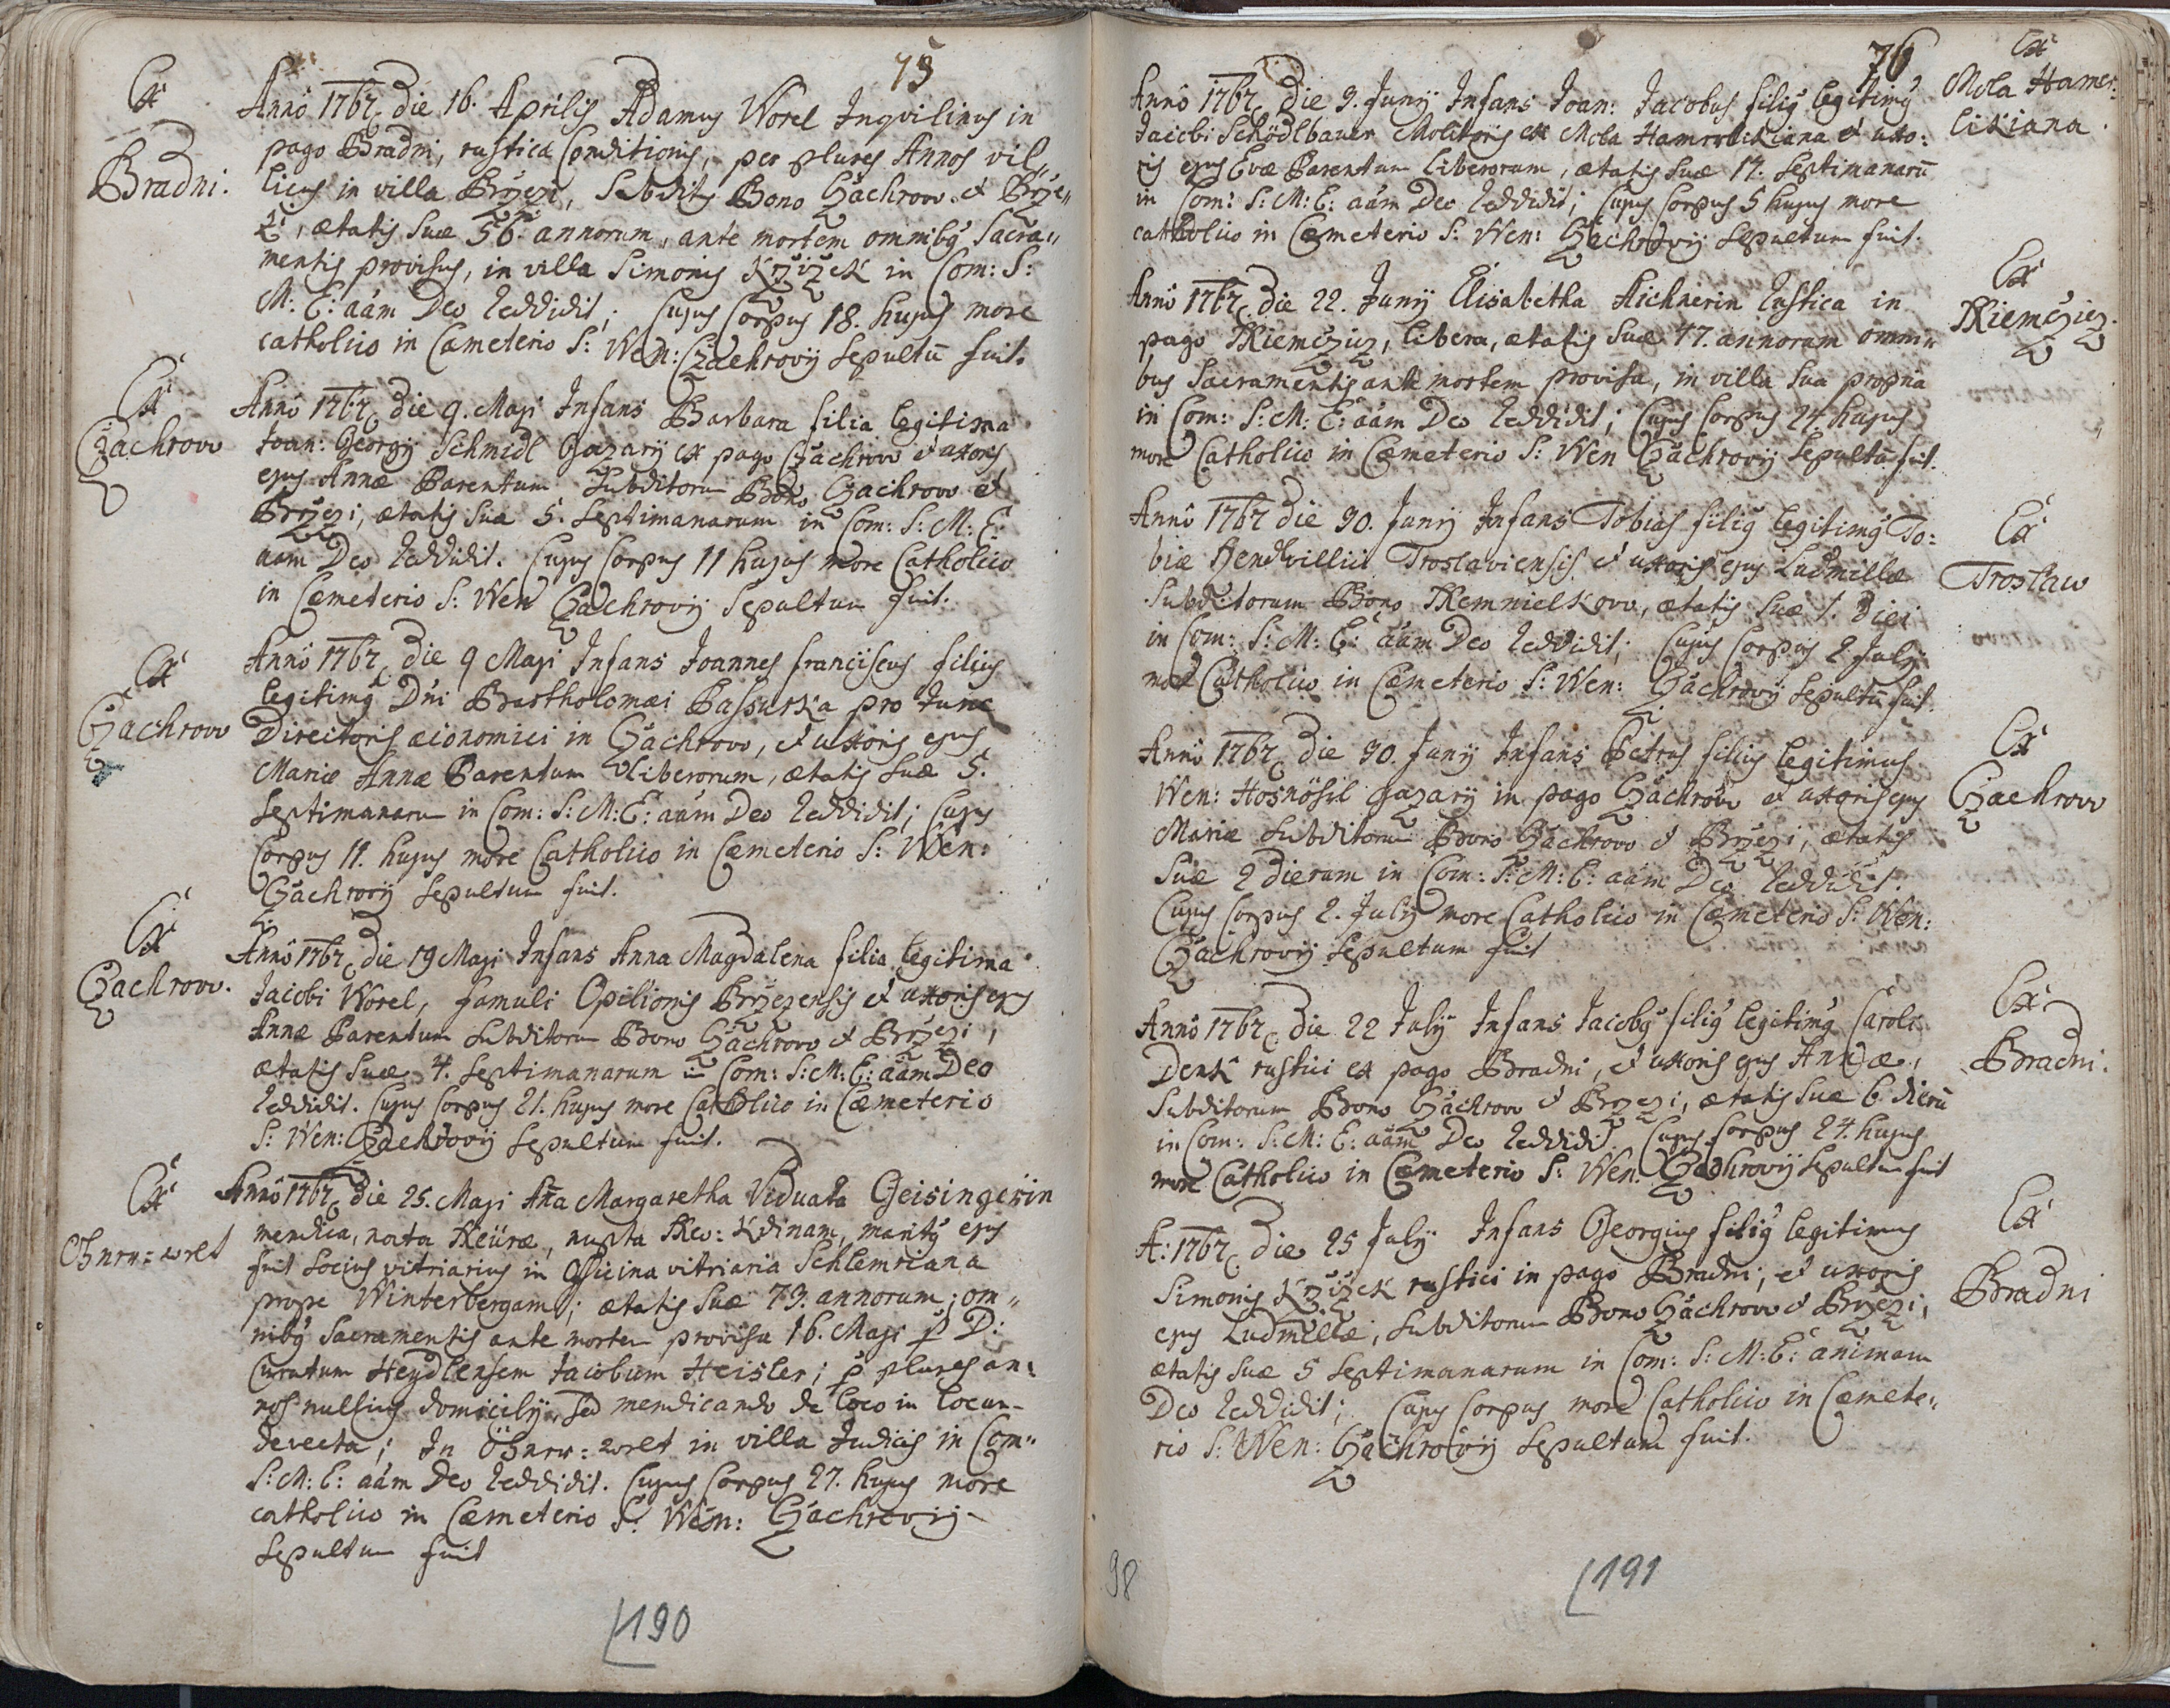 75
Ex
Bradni.
Anno 1767 die 16. Aprilis Adamus Worel Inqvilinus in
pago Bradni, rusticæ Conditionis, per plures Annos vil„
licus in villa Brzezi, Subditus Bono Czachrow et Brze„
zi, ætatis Suæ 56. annorum, ante mortem omnibꝰ Sacra„
mentis provisus, in villa Simonis Krzizek in Com: S:
M: E: aãm Deo reddidit; Cujus Corpus 18. hujus more
catholico in Cæmeterio S: Wen: Czachrovij Sepultũ fuit.
Ex
Czachrow
Anno 1767 die 9. Maji Infans Barbara filia legitima
Joan: Georgij Schmidl Gazarij ex pago Czachrow et uxoris
ejus Annæ Parentum Subditorum Bono Czachrow et
Brzezi, ætatis Suæ 5. Septimanarum in Com: S: M: E:
aãm Deo reddidit. Cujus Corpus 11 hujus more Catholico
in Cæmeterio S: Wen Czachrovij Sepultum fuit.
Ex
Czachrow
Anno 1767 die 9 Maji Infans Joannes Franciscus filius
legitimꝰ Dni Bartholomæi Passurka pro tunc
Directoris œconomici in Czachrow, et uxoris ejus
Mariæ Annæ Parentum liberorum, ætatis Suæ 5.
Septimanaru in Com: S: M: E: aãm Deo reddidit; Cujus
Corpus 11. hujus more Catholico in Cæmeterio S: Wen:
Czachrovij Sepultum fuit.
Ex
Czachrow.
Anno 1767 die 19 Maji Infans Anna Magdalena filia legitima
Jacobi Worel, famuli Opilionis Brzezensis et uxoris ejus
Annæ Parentum Subditorum Bono Czachrow et Brzezi,
ætatis Suæ 4. Septimanarum in Com: S: M: E: aãm Deo
reddidit. Cujus Corpus 21. hujus more Catholico in Cæmeterio
S: Wen: Czachrovij Sepultum fuit.
Ex
Anno 1767 die 25. Maji Aña Margaretha Viduata Geisingerin
mendica, nata, nupta, maritꝰ ejus
fuit Socius vitriarius in Officina vitriaria Schlemriana
prope Winterbergam; ætatis Suæ 73. annorum; om„
nibꝰ Sacramentis ante mortem provisa 16. Maji p D:
Curatum Heydlensem Jacobum Heisler; p plures an:
nos nullius domicilij, sed mendicando de loco in locum
devecta; In in villa Judicis in Com„
S: M: E: aãm Deo reddidit. Cujus Corpus 27. hujus more
catholico in Cæmeterio S: Wen: Czachrovij
Sepultum fuit
190
76
Ex
Mola Hamer:
likiana.
Anno 1767 die 3. Junij Infans Joan: Jacobus filiꝰ legitimꝰ
Jacobi Schödlbauer Molitoris ex Mola Hamerlikiana et uxo:
ris ejus Evæ Parentum liberorum, ætatis Suæ 17. Septimanarũ
in Com: S: M: E: aãm Deo reddidit; Cujus Corpus 5 hujus more
catholico in Cæmeterio S: Wen: Czachrovij Sepultum fuit.
Ex
Anno 1767 die 22. Junij Elisabetha Aichnerin rustica in
pago, libera, ætatis Suæ 47. annorum omni„
bus Sacramentis ante mortem provisa, in villa sua propria
in Com: S: M: E: aãm Deo reddidit; Cujus Corpus 24. hujus
more Catholico in Cæmeterio S: Wen Czachrovij Sepultũ fuit.
Ex
Troslaw
Anno 1767 die 30. Junij Infans Tobias filiꝰ legitimꝰ To:
biæ Hendl villici Troslaviensis et uxoris ejus Ludmillæ
Subditorum Bono, ætatis Suæ 1. diei
in Com: S: M: E: aãm Deo reddidit; Cujus Corpus 2 Julij
more Catholico in Cæmeterio S: Wen: Czachrovij Sepultũ fuit.
Ex
Czachrow
Anno 1767 die 30. Junij Infans Petrus filius legitimus
Wen: Gazarij in pago Czachrow et uxoris ejus
Mariæ Subditorum Bono Czachrow et Brzezi, ætatis
Suæ 2 dierum in Com: S: M: E: aãm Deo reddidit.
Cujus Corpus 2. Julij more Catholico in Cæmeterio S: Wen:
Czachrovij Sepultum fuit
Ex
Bradni.
Anno 1767 die 22 Julij Infans Jacobꝰ filiꝰ legitimꝰ Caroli
Denk rustici ex pago Bradni, et uxoris ejus Annæ,
Subditorum Bono Czachrow et Brzezi, ætatis Suæ 6 dierũ
in Com: S: M: E: aãm Deo reddidit. Cujus Corpus 24. hujus
more Catholico in Cæmeterio S: Wen: Czachrovij Sepultum fuit
Ex
Bradni
A: 1767 die 25 Julij Infans Georgius filiꝰ legitimus
Simonis Krzizek rustici in pago Bradni, et uxoris
ejus Ludmillæ, Subditorum Bono Czachrow et Brzezi,
ætatis Suæ 5 Septimanarum in Com: S: M: E: animam
Deo reddidit; Cujus Corpus more Catholico in Cæmete„
rio S: Wen: Czachrovij Sepultum fuit.
98
191